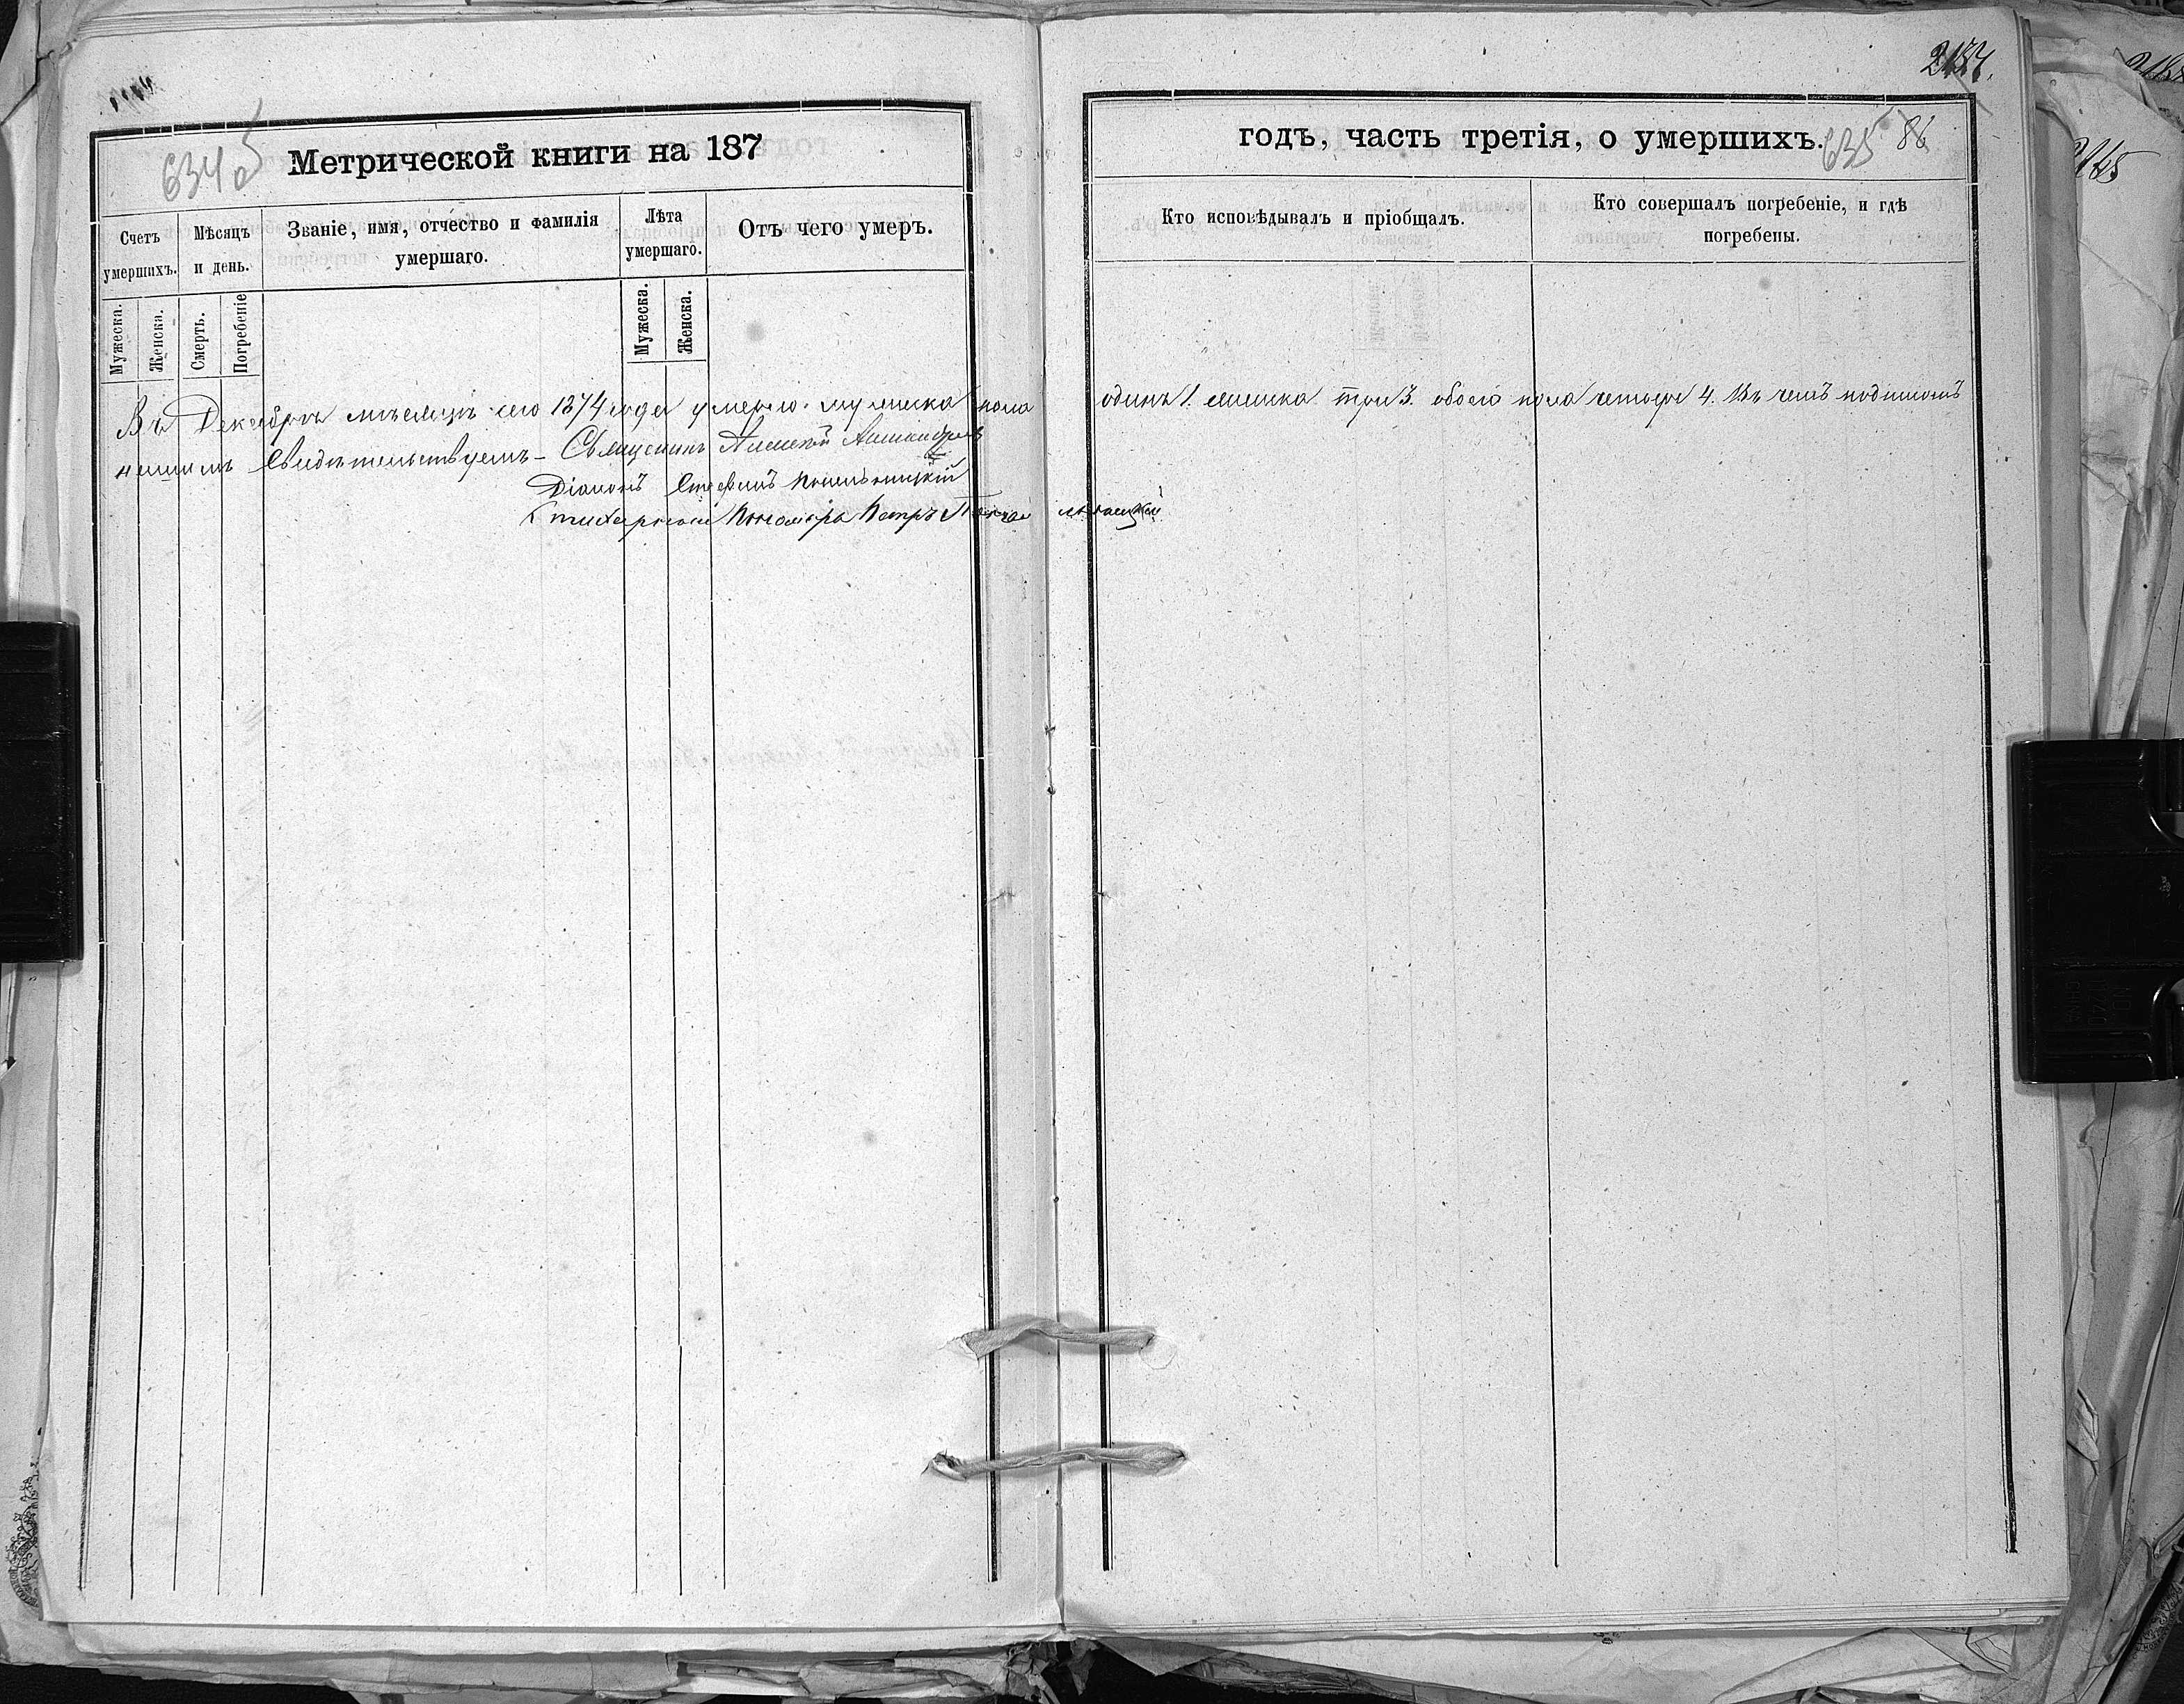 2187.
634об
Метрической книги на 187
годъ, часть третія, о умершихъ.
635 86
Счетъ умершихъ.
Мѣсяцъ и день.
Званіе, имя, отчество и фамилія умершаго.
Лѣта умершаго.
Отъ чего умеръ.
Кто исповѣдывалъ и пріобщалъ.
Кто совершалъ погребеніе, и гдѣ погребены.
Мужеска.
Женска.
Смерть.
Погребеніе
Мужеска.
Женска.
Въ Декабрѣ мѣсяцѣ сего 1874 года умерло мужеска пола одинъ 1. женска три 3. обоего пола четыре 4. Въ чемъ подписомъ
нашимъ свидѣтельствуемъ – Священникъ Алексѣй
Діаконъ Стефанъ
Пономарь Петръ
2165